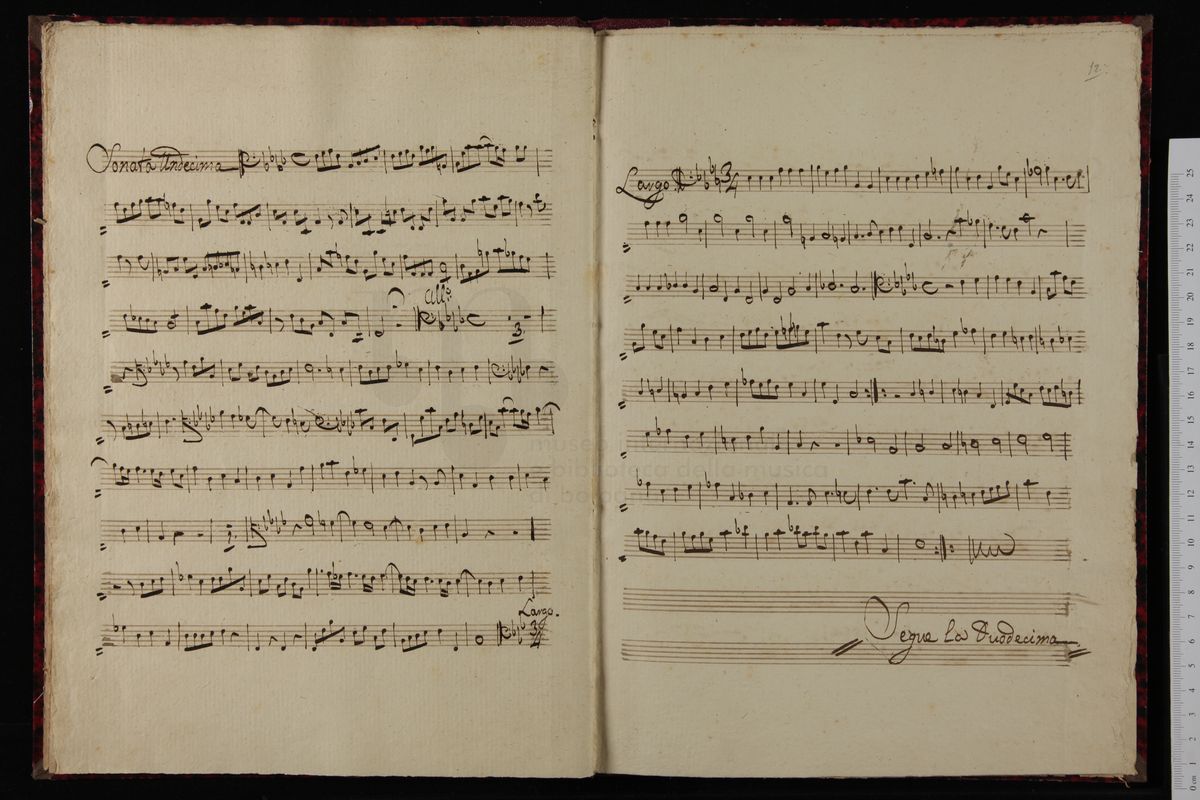 Sonata Undecima
all.o
3
Largo.
12
Largo
3/4
Segue la Duodecima
museo i
biblioteca della musica
di bologna
0 cm 1 2 3 4 5 6 7 8 9 10 11 12 13 14 15 16 17 18 19 20 21 22 23 24 25